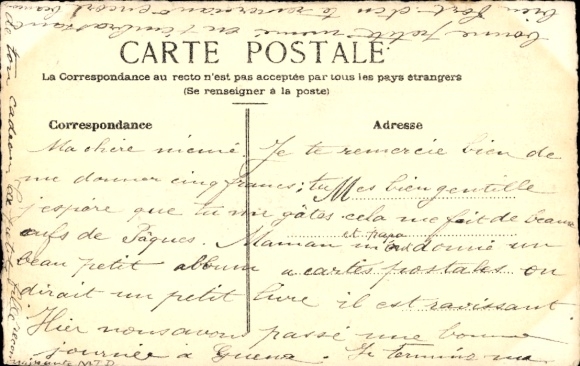 CARTE POSTALE
La Correspondance au recto n'est pas acceptée par tous les pays étrangers
(Se renseigner à la poste)
Correspondance
Adresse
Ma chère mémé Je te remercie bien de
me donner cinq francs; tu es bien gentille
j'espère que tu me gâtes cela me fait de beaux
œufs de Pâques. Maman et Papa m'a donné un
beau petit album a cartes postales on
dirait un petit livre il est ravissant
Hier nous avons passé une bonne
journée à Je termine ma
bonne petite mémé en t'embrassant
bien fort et en te remerciant encore
de ton cadeau